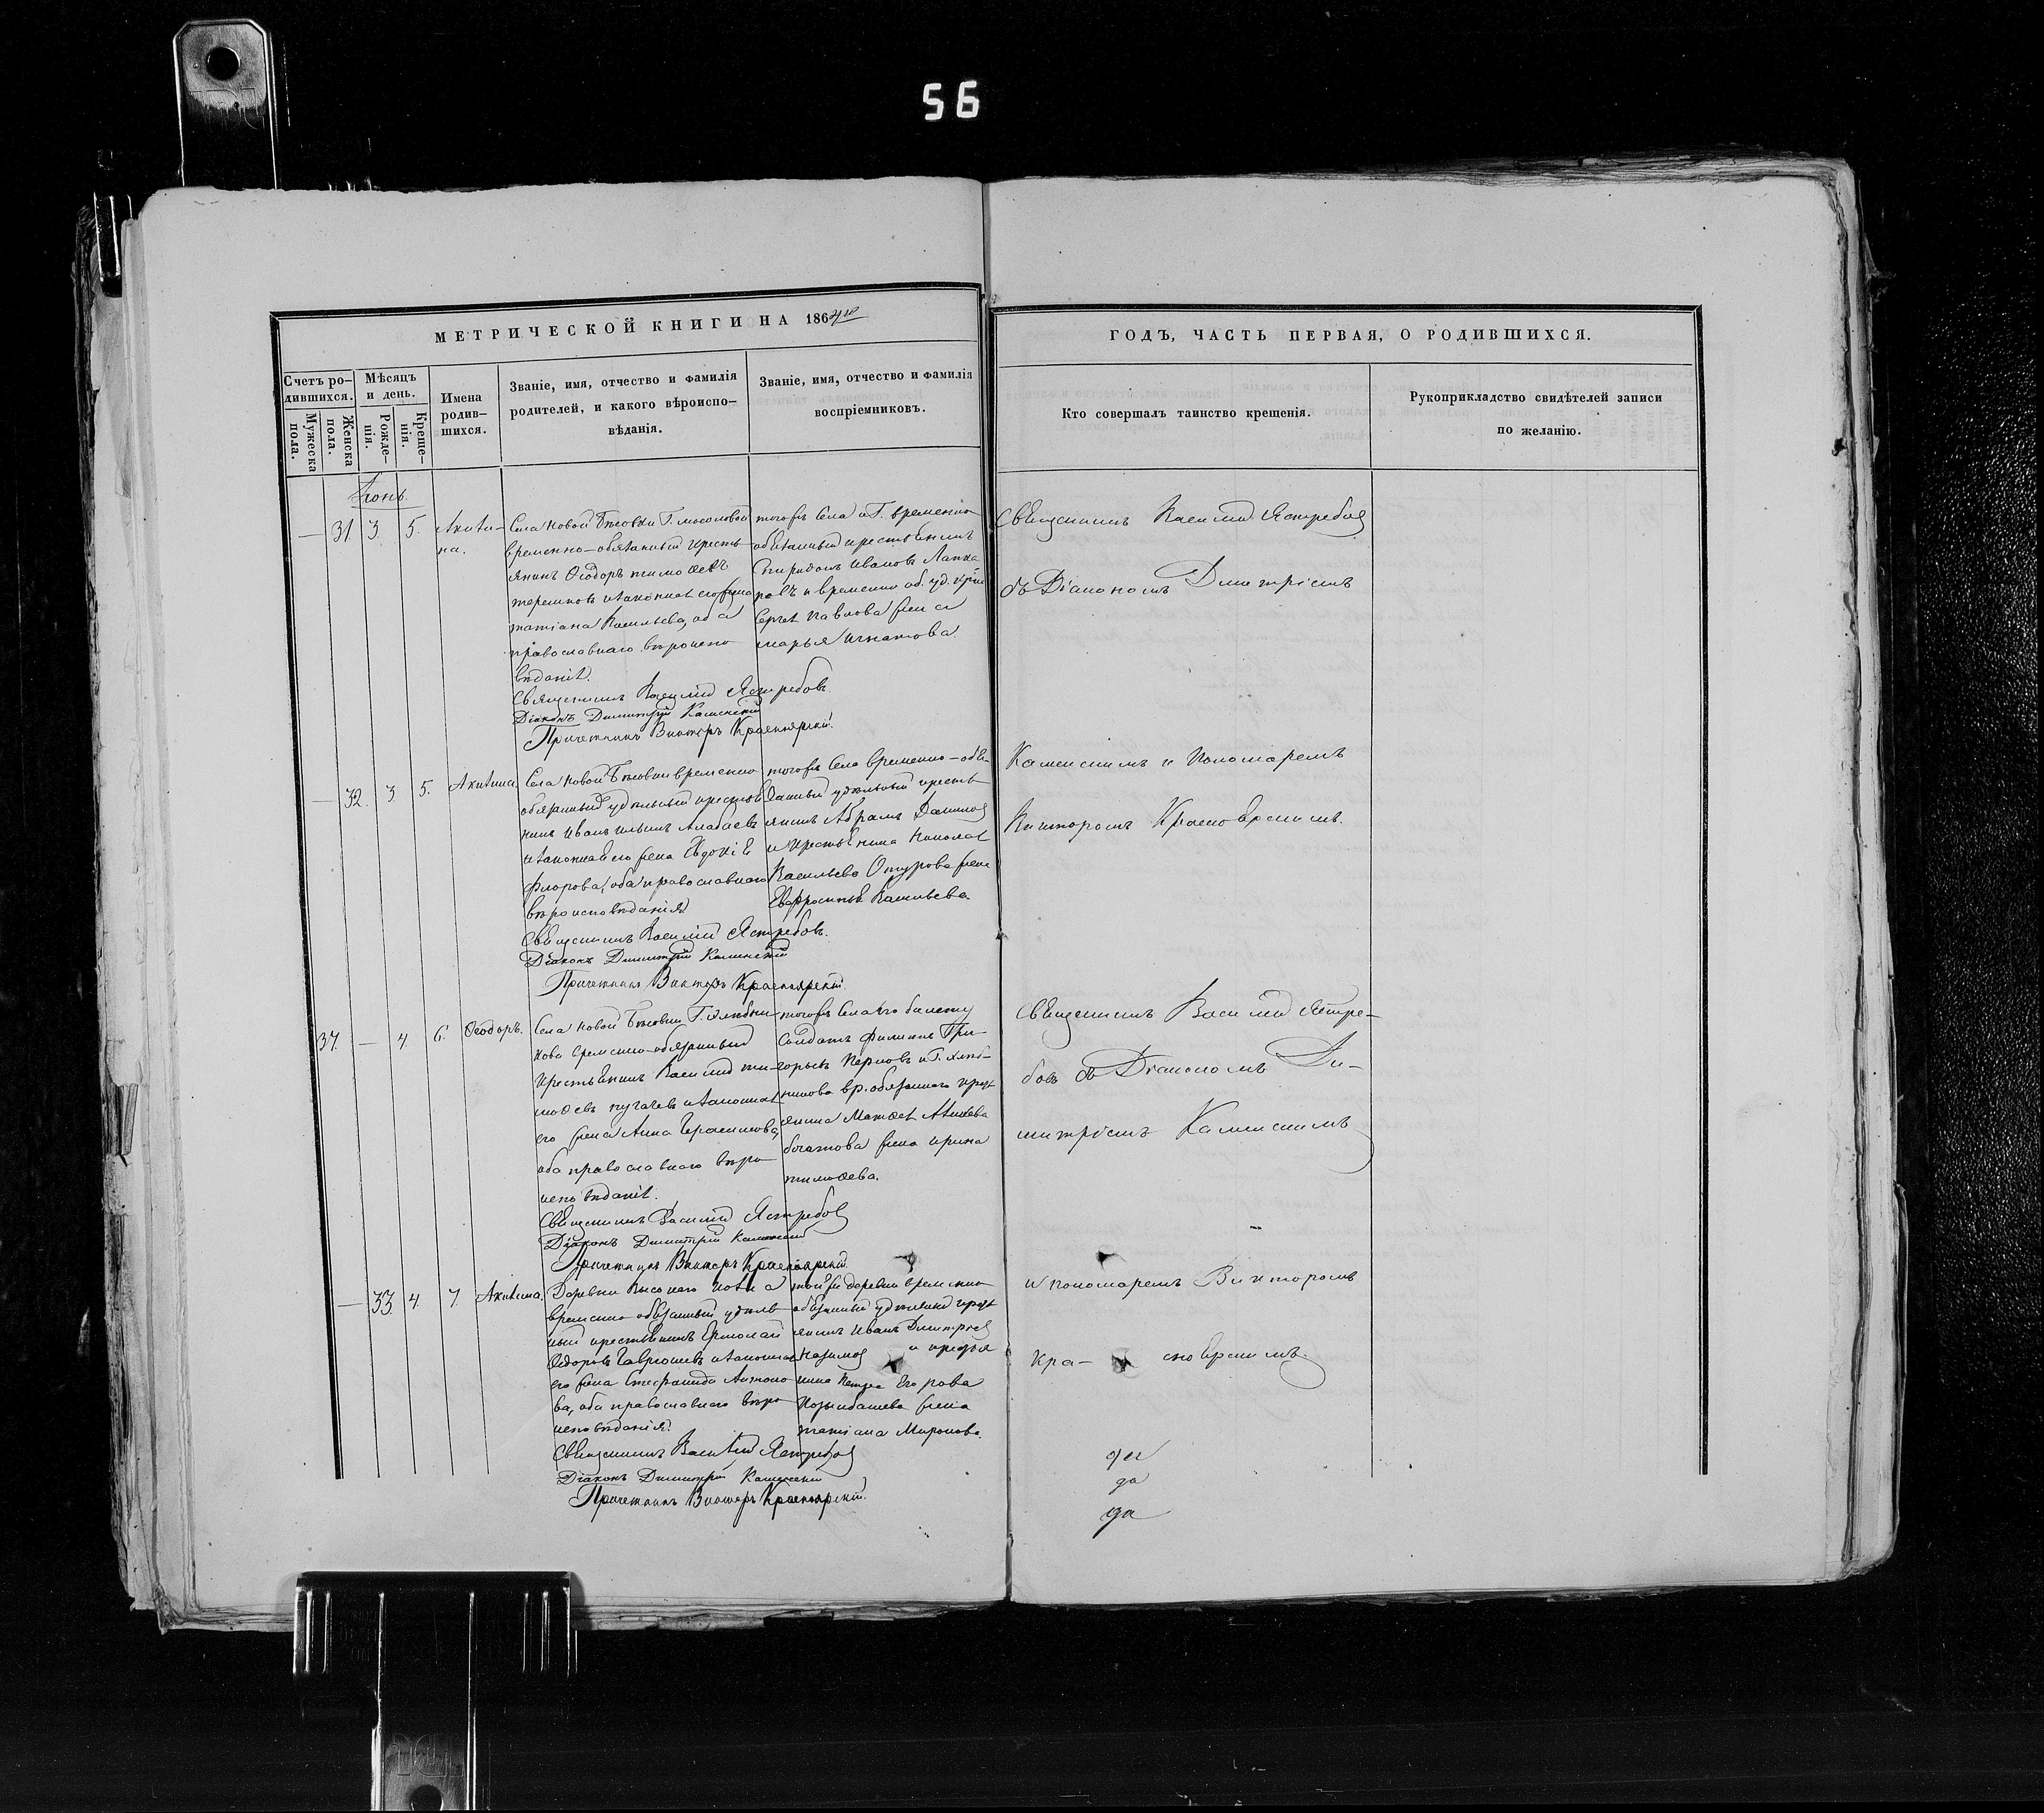 56
МЕТРИЧЕСКОЙ КНИГИ НА 1864й
ГОДЪ, ЧАСТЬ ПЕРВАЯ, О РОДИВШИХСЯ.
Счетъ ро-
дившихся.
Мужеска пола.
Женска пола.
Мѣсяцъ
и день.
Рожде-
нія.
Креще-
нія.
Имена
родив-
шихся.
Званіе, имя, отчество и фамилія
родителей, и какого вѣроиспо-
вѣданія.
Званіе, имя, отчество и фамилія
воспріемниковъ.
Кто совершалъ таинство крещенія.
Рукоприкладство свидѣтелей записи
по желанію.
Іюнь.
— 31. 3. 5. Акили-
на.
Села Новой
временно-обязанный кресть
янинъ Ѳеодоръ Тимоѳеевъ
и законная его жена
Татіана Васильева, оба
православнаго вѣроиспо
вѣданія.
Священникъ Василій Ястребовъ.
Діаконъ Димитрій Каменскій
Причетникъ Викторъ Красноярскій.
тогожъ села и Г. временно
обязанный крестьянинъ
Спиридонъ Ивановъ
и временно об. уд. крес
Сергея Павлова жена
Марья Игнатова.
Священникъ Василій Ястребовъ
съ Діакономъ Дмитріемъ
— 32. 3. 5. Акилина
Села Новой временно
обязанный удѣльный крестья
нинъ Иванъ Ильинъ Алабаевъ
и законная его жена Евдокія
Флорова, оба православнаго
вѣроисповѣданія
Священникъ Василій Ястребовъ.
Діаконъ Димитрій Каменскій
Причетникъ Викторъ Красноярскій.
тогожъ села временно-обя-
занный удѣльный кресть
янинъ Абрамъ Даниловъ
и крестьянина Николая
Васильева жена
Евфросинья Васильева.
Каменскимъ и пономаремъ
Викторомъ Красноярскимъ.
37. — 4. 6. Ѳеодоръ.
Села Новой Г. Хлѣбни
кова временно-обязанный
крестьянинъ Василій Ти-
моѳеевъ Пугачевъ и законная
его жена Анна Герасимова,
оба православнаго вѣро
исповѣданія.
Священникъ Василій Ястребовъ
Діаконъ Димитрій Каменскій
Причетникъ Викторъ Красноярскій.
тогожъ села по билету
Солдатъ Филиппъ Гри-
горьевъ и Г. Хлѣб-
никова вр. обязаннаго крест
янина Матвея
жена Ирина
Тимоѳеева.
Священникъ Василій Ястре-
бовъ съ Діакономъ Ди-
митріемъ Каменскимъ
— 33. 4. 7. Акилина.
Деревни
временно обязанный удѣль
ный крестьянинъ Ермолай
Ѳедоровъ Гаврюшевъ и законная
его жена Стефанида Антоно
ва, оба православнаго вѣро
исповѣданія.
Священникъ Василій Ястребовъ
Діаконъ Димитрій Каменскій
Причетникъ Викторъ Красноярскій.
той же деревни временно
обязанный удѣльный крест
янинъ Иванъ Дмитріевъ
и крестья
нина Петра Егорова
жена
Татіана Миронова.
и пономаремъ Викторомъ
Кра- сноярскимъ.
да
да